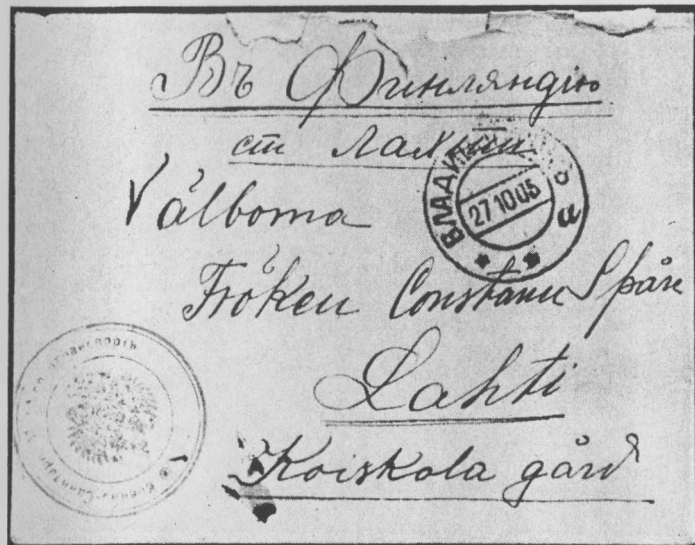 Въ Финляндію
ст Лахти
Välborna
Fröken Constance Spåre
Lahti
Koiskola gård
ВЛАДИ
27 10 05
а